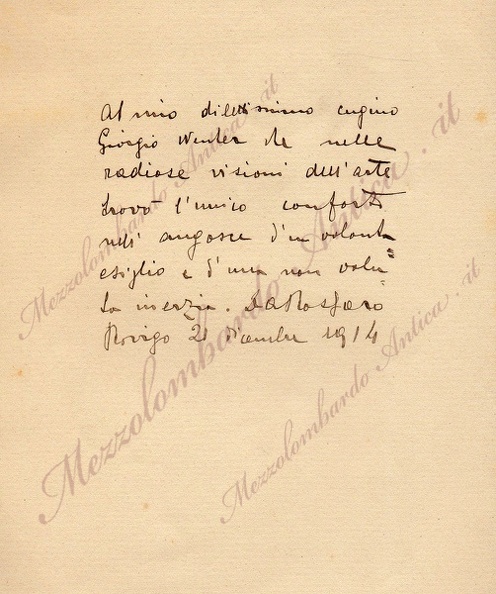 Al mio dilettissimo cugino
Giorgio Wenter che nelle
radiose visioni dell'arte
trovò l'unico conforto
nell' angosce d'un volonta
esiglio e d'una non volu=
ta inerzia.
Rovigo 21 dicembre 1914
Mezzolombardo Antica.it
Mezzolombardo Antica.it
Mezzolombardo Antica.it